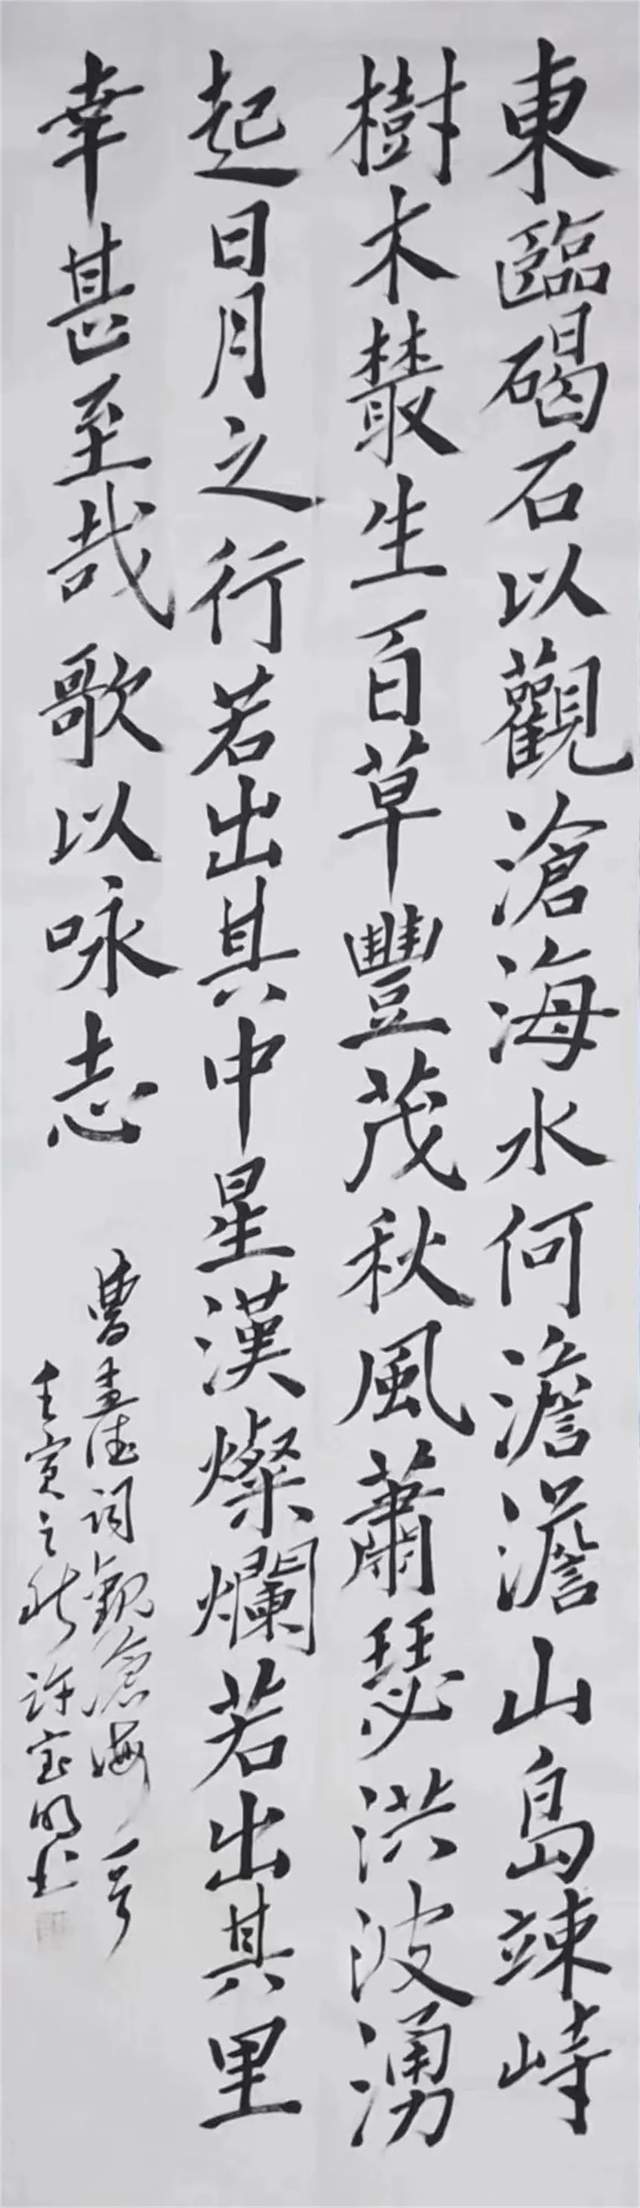 東臨碣石以觀滄海水何澹澹山島竦峙
樹木叢生百草豐茂秋風蕭瑟洪波湧
起日月之行若出其中星漢燦爛若出其里
幸甚至哉歌以咏志
曹孟德词觀滄海一首
壬寅之秋許宝明书